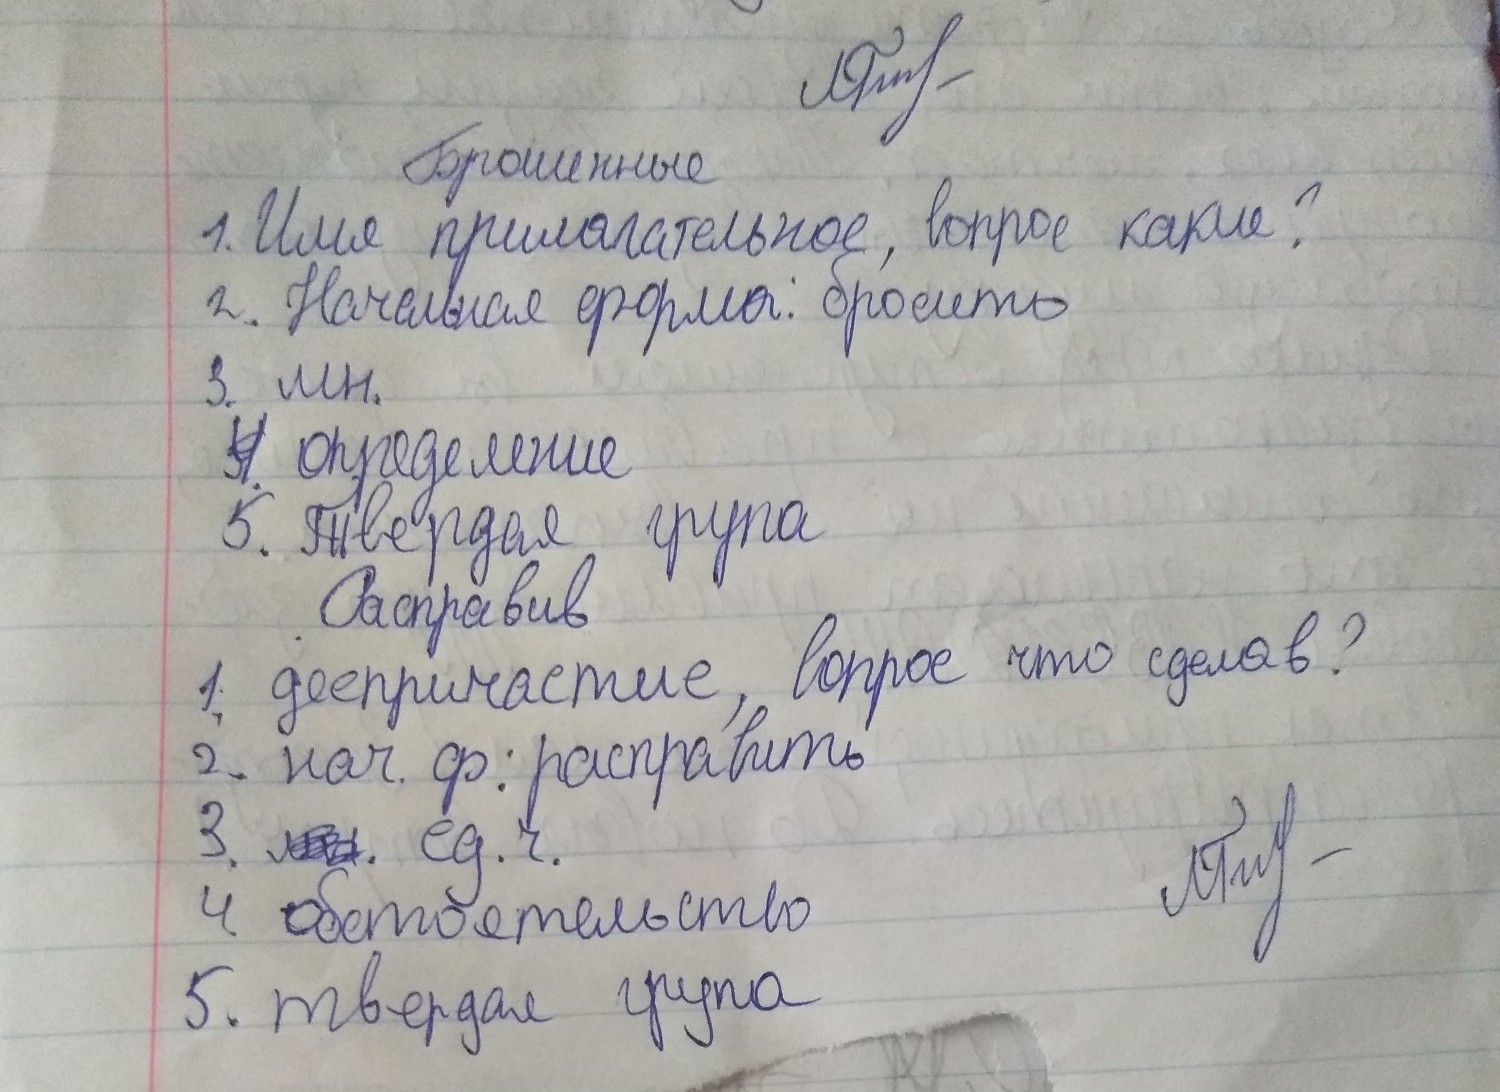 Брошенные
1. Имя прилагательное, вопрос какие?
2. Начальная форма: бросить
3. мн.
4. определение
5. Твердая група
Расправив
1. деепричастие, вопрос что сделав?
2. нач. ф: расправить
3. ед. ч.
4 обстоятельство
5. твердая група